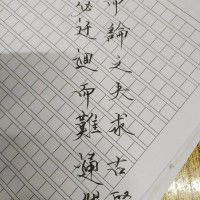 論之夫求古
迂迴而難通